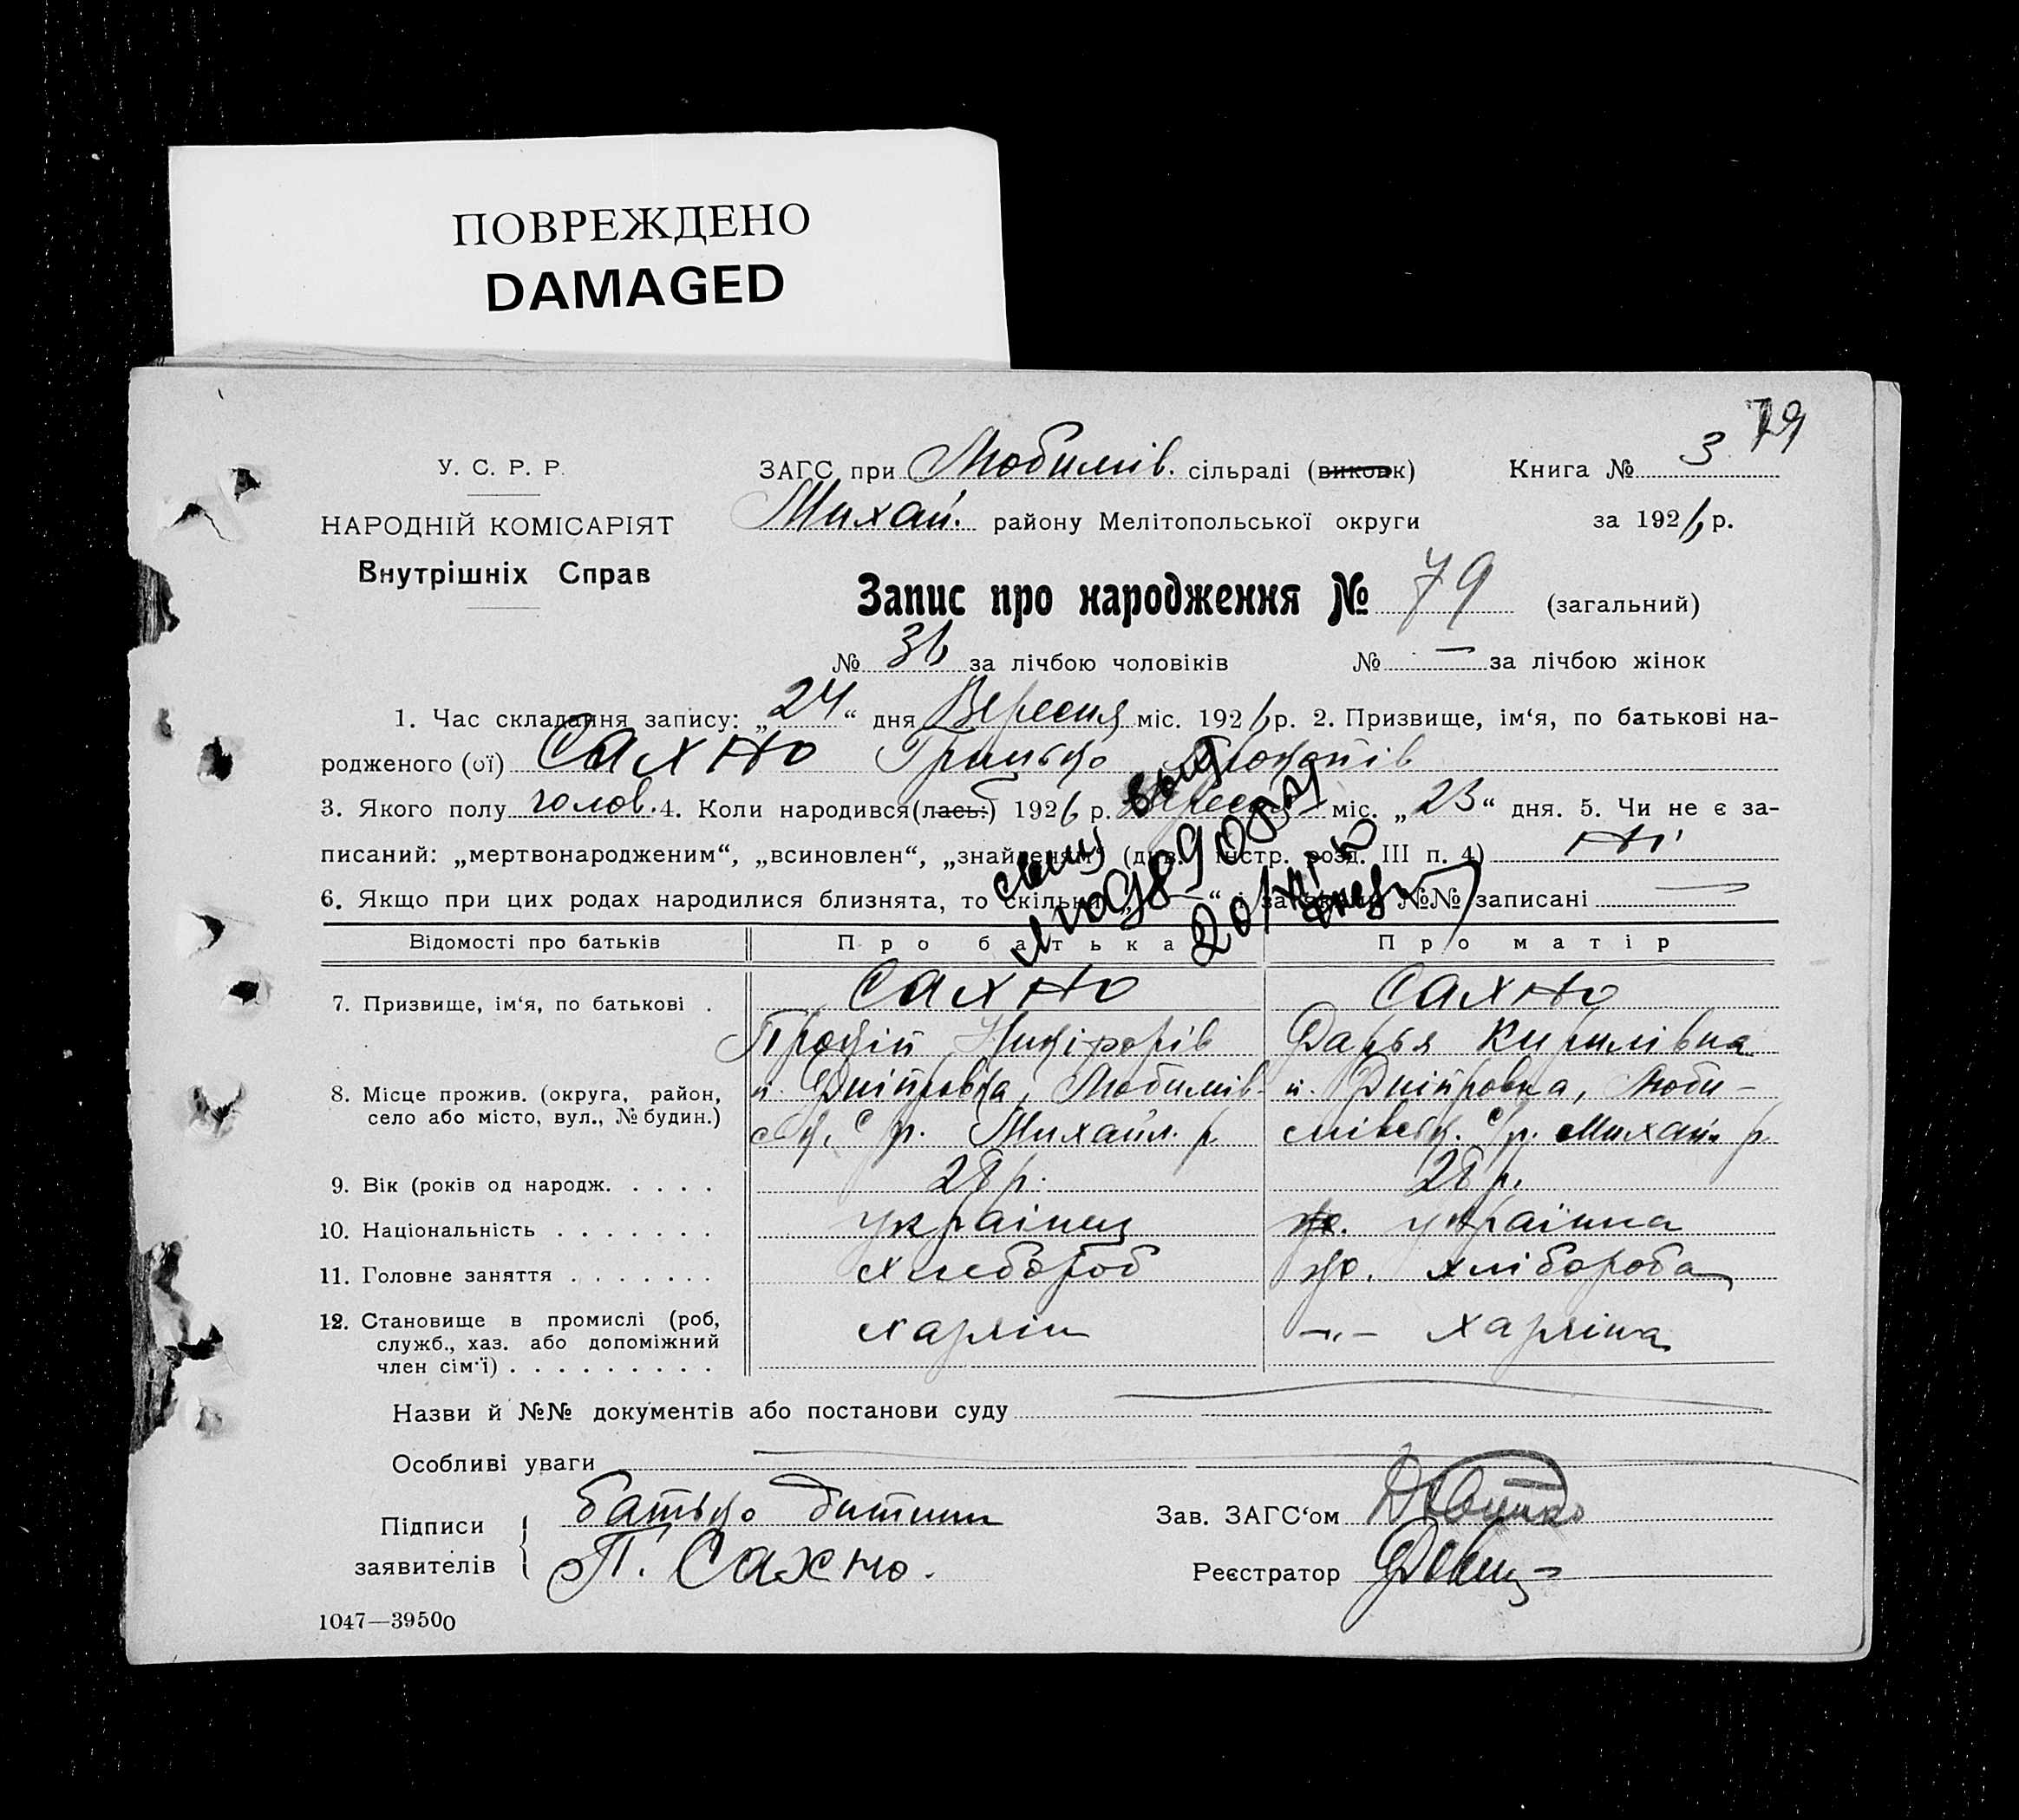 ПОВРЕЖДЕНО
DAMAGED
79
У. С. Р. Р.
НАРОДНІЙ КОМІСАРІЯТ
Внутрішніх Справ
ЗАГС при Любимів. сільраді (виковк) Книга № 3
Михай. району Мелітопольської округи за 1926 р.
Запис про народження № 79 (загальний)
№ 36 за лічбою чоловіків № — за лічбою жінок
1. Час складання запису: „24“ дня Вересня міс. 1926 р. 2. Призвище, ім‘я, по батькові на-
родженого (ої) Сахно Грицько
3. Якого полу чолов. 4. Коли народився(лась:) 1926 р. Вересня міс. „23“ дня. 5. Чи не є за-
писаний: „мертвонародженим“, „всиновлен“, „знайденям“ (див. інстр. розд. III п. 4) Ні
6. Якщо при цих родах народилися близнята, то скільки „—“ і за якими №№ записані —
Відомості про батьків Про батька Про матір
7. Призвище, ім‘я, по батькові . Сахно Сахно
Прокіп Никіфорів Дарья Кирилівна
8. Місце прожив. (округа, район, село або місто, вул., № будин.) п. Дніпровка, Любимів- п. Дніпровка, Люби-
ск. с/р. Михайл. р. мівськ. с/р. Михайл. р.
9. Вік (років од народж. . . . . 28 р. 28 р.
10. Національність . . . . . . . українец українка
11. Головне заняття . . . . . . . хлебороб хлібороба
12. Становище в промислі (роб, служб., хаз. або допоміжний член сім‘ї) . . . . . . . . . харлін —„— харліна
Назви й №№ документів або постанови суду
Особливі уваги
Підписи заявителів { батько дитини
П. Сахно.
Зав. ЗАГС‘ом
Реєстратор
1047—39500